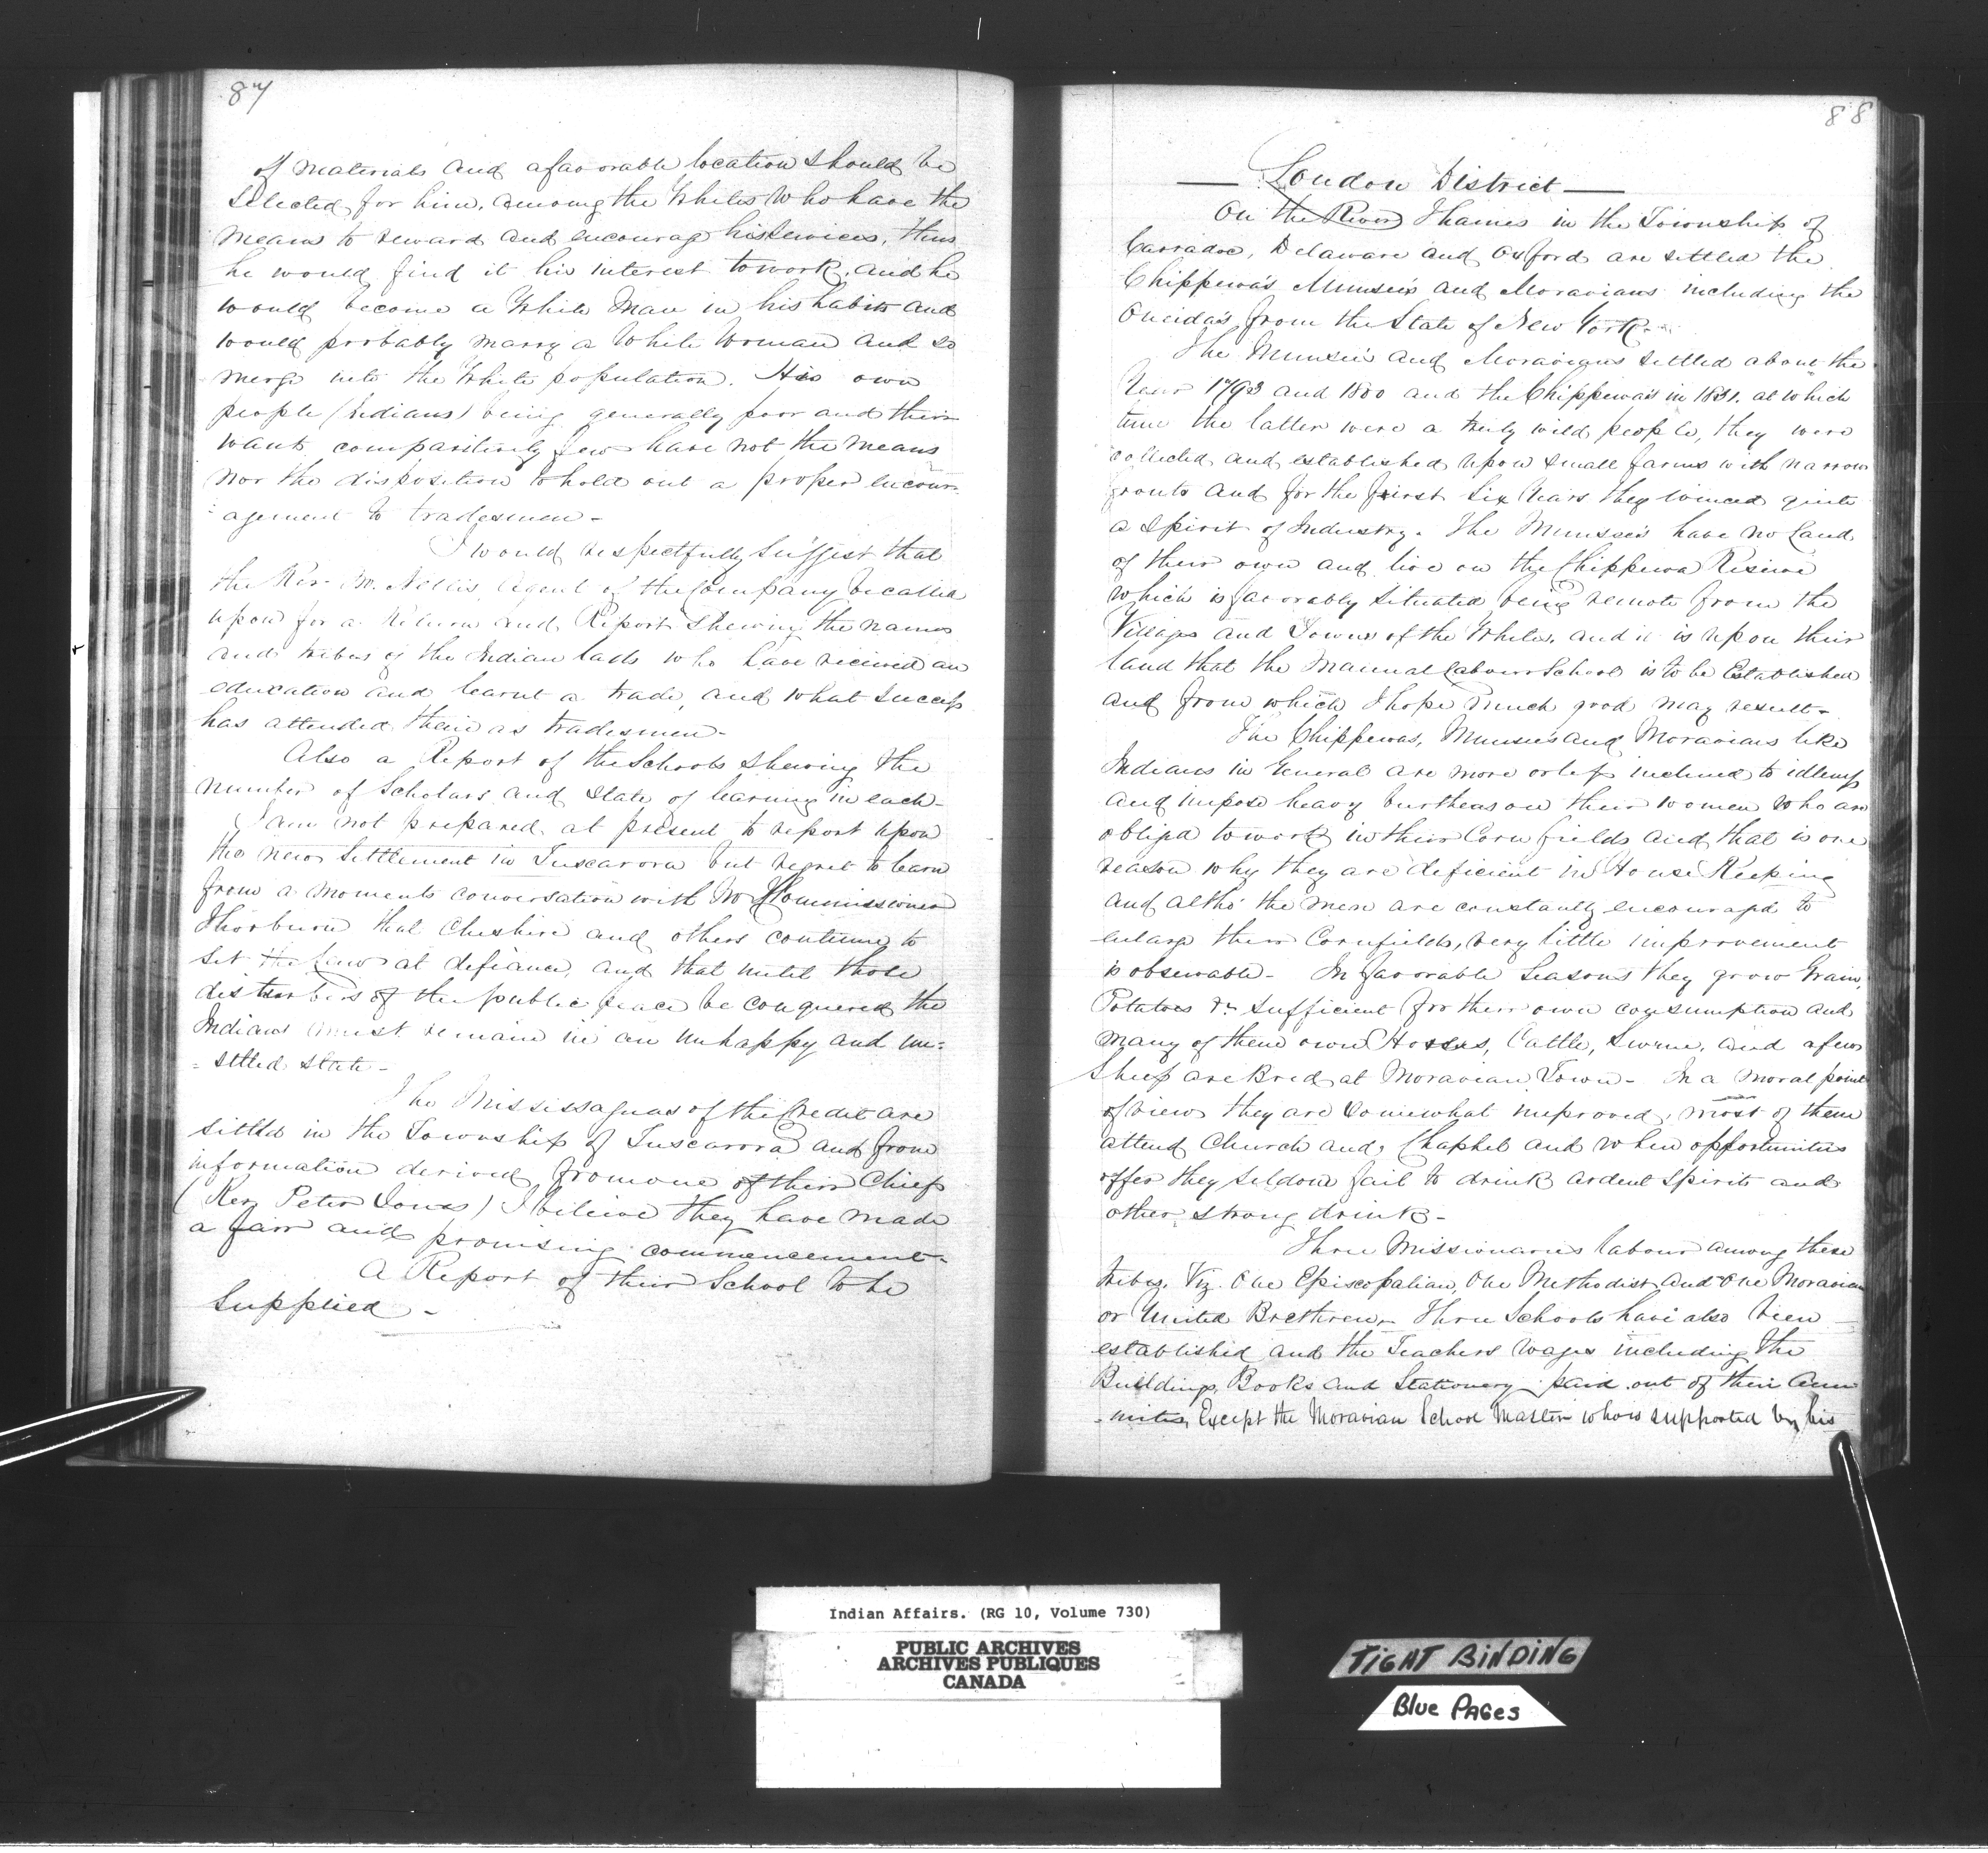 87
of materials and a favorable location should be
selected for him, among the Whites who have the
means to reward and encourag his services, thus
he would find it his interest to work, and he
would become a White Man in his habits and
would probably marry a White Woman and so
merge into the White population. His own
people (Indians) being generally poor and their
wants comparitively few have not the means
nor the disposition to hold out a proper encour-
agement to tradesmen -
I would respectfully suggest that
the Rev. Mr. Nelles Agent of the Company be called
upon for a Return and Report shewing the names
and tribes of the Indian lads who have received an
education and learnt a trade, and what success
has attended their as tradesmen -
Also a Report of the Schools shewing the
number of Scholars and state of learning in each -
I am not prepared at present to report upon
the new Settlement in Tuscarora but regret to learn
from a moments conversation with Mr Commissioner
Thorburn that Cheshire and others continue to
set the Laws at defiance, and that until those
disturbers of the public peace be conquered the
Indians must remain in an unhappy and un=
= settled state -
The Mississaguas of the Credit are
settled in the Township of Tuscarora and from
information derived from one of their Chiefs
(Rev Peter Jones) I believe they have made
a fair and promising commencement -
A Report of their School to be
supplied -
88
— London District —
On the River Thames in the Township of
Carradoc, Delaware and Oxford are settled the
Chippewa's Munsee's and Moravians including the
Oneida's from the State of New York -
The Munsee's and Moravians settled about the
Year 1793 and 1800 and the Chippewa's in 1831. at which
time the latter were a truly wild people, they were
collected and established upon small farms with narrow
fronts and for the first six Years they evinced quite
a spirit of Industry. The Munsee's have no Land
of their own and live on the Chippewa Reserve
which is favorably situated being remote from the
Villages and Towns of the Whites, and it is upon their
land that the Manual Labour School is to be Established
and from which I hope much good may result -
The Chippewas, Munsee's and Moravians like
Indians in General are more or less inclined to idleness
and impose heavy burthens on their women who are
obliged to work in their Corn fields and that is one
reason why they are deficient in House Keeping
and altho' the men are constantly encouraged to
enlarge their Cornfields, very little improvement
is observable - In favorable Seasons they grow Grain,
Potatoes &c sufficient for their own consumption and
many of them own Horses, Cattle, Swine, and a few
Sheep are Bred at Moravian Town - In a moral point
of view they are somewhat improved, most of them
attend Church and Chaphel and when opportunities
offer they seldom fail to drink ardent spirits and
other strong drink -
Three Missionaries labour among these
tribes, Viz. One Episcopalian, One Methodist and One Moravian
or United Brethren - Three Schools have also been
established and the Teachers Wages including the
Buildings, Books and Stationery paid out of their Ann
- uities, Except the Moravian School Master who is supported by his
Indian Affairs. (RG 10, Volume 730)
PUBLIC ARCHIVES
ARCHIVES PUBLIQUES
CANADA
TIGHT BINDING
Blue PAGes